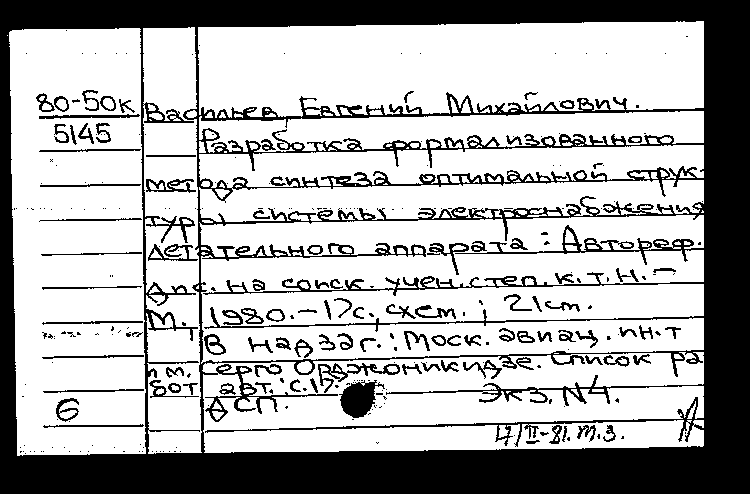 80-50к Васильев, Евгений Михайлович.
5145 Разработка формализованного
метода синтеза оптимальной струк-
туры системы электроснабжения
летательного аппарата : Автореф.
дис. на соиск. учен. степ. к. т. н. -
М., 1980. - 17с., схем. ; 21см.
В надзаг. : Моск. авиац. ин-т
им. Серго Орджоникидзе. Список ра
бот авт. : с.17.
6 ДСП. Экз. N4.
17/II-81. т.з.